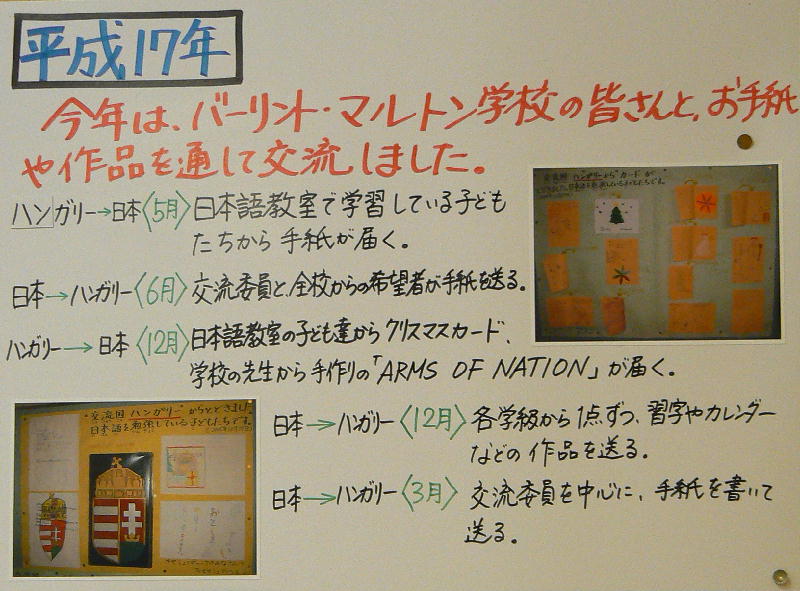 平成17年
今年は、バーリント・マルトン学校の皆さんと、お手紙
や作品を通して交流しました。
ハンガリー→日本〈5月〉日本語教室で学習している子ども
たちから手紙が届く。
日本→ハンガリー〈6月〉交流委員と、全校からの希望者が手紙を送る。
ハンガリー→日本〈12月〉日本語教室の子ども達からクリスマスカード、
学校の先生から手作りの「ARMS OF NATION」が届く。
日本→ハンガリー〈12月〉各学級から1点ずつ、習字やカレンダー
などの作品を送る。
日本→ハンガリー〈3月〉交流委員を中心に、手紙を書いて
送る。
交流国 ハンガリーから カードが
交流国 ハンガリー からとどきました
日本語を勉強している子どもたちです。